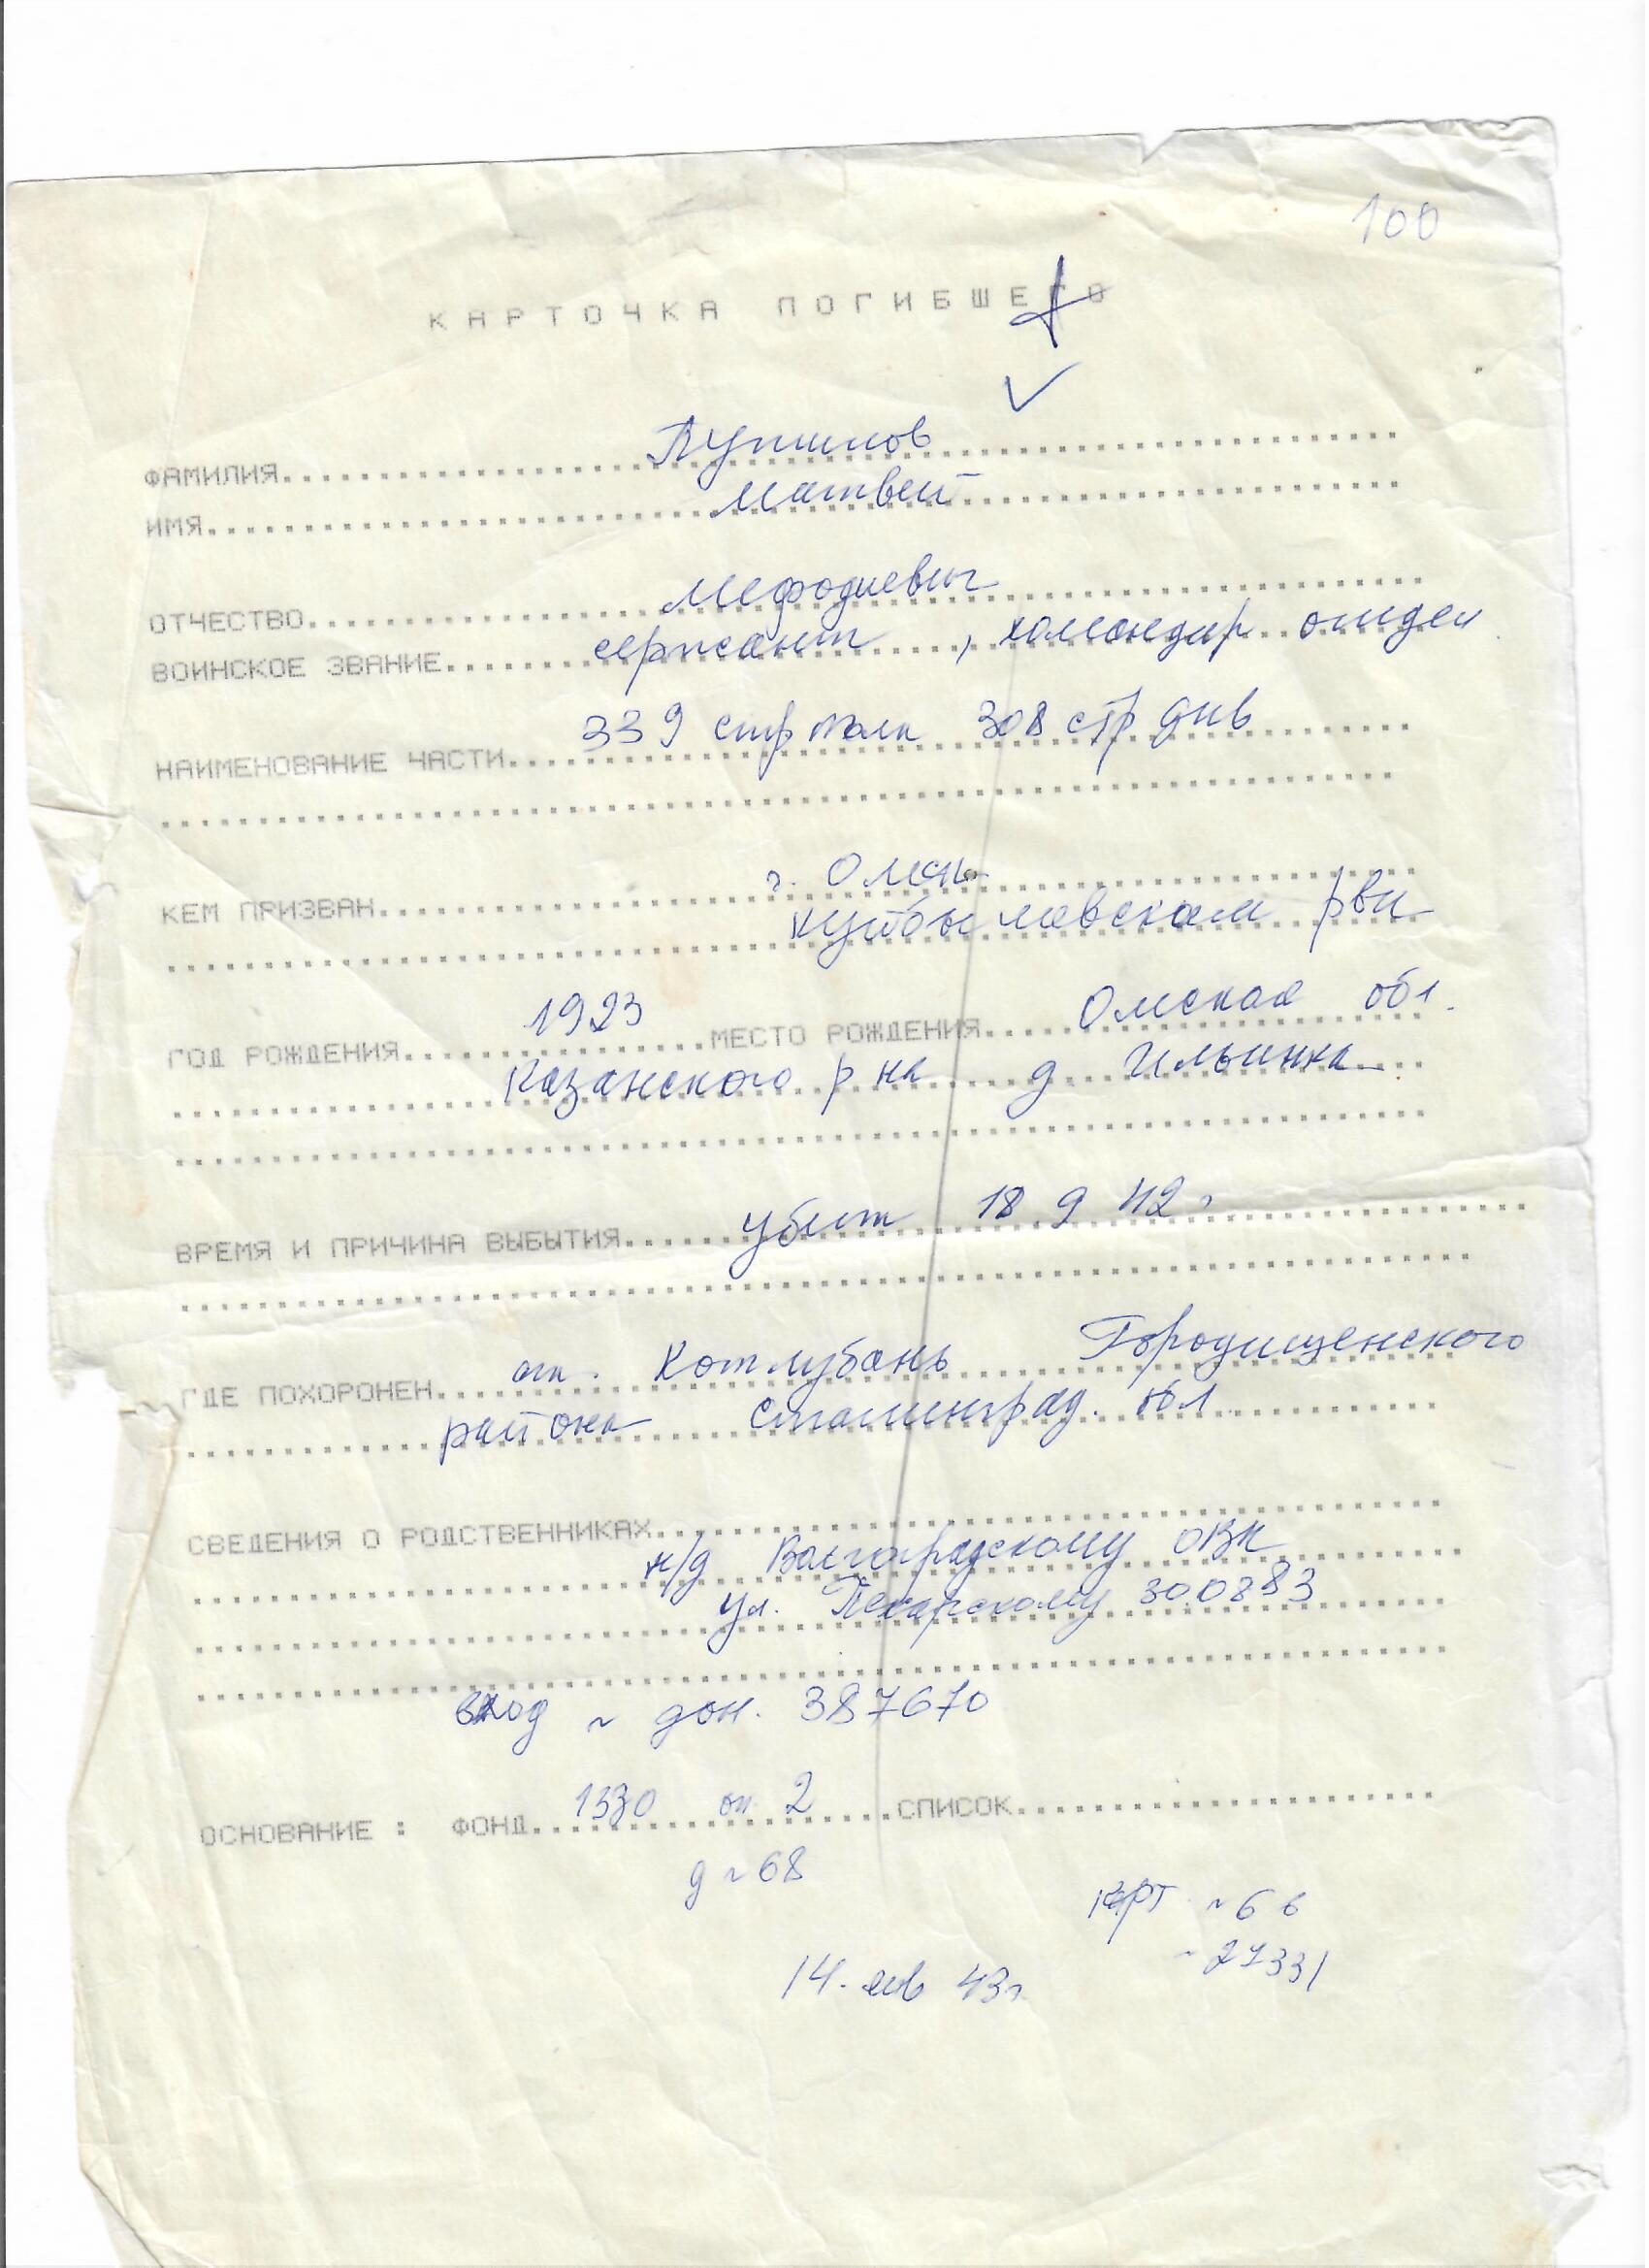 100
КАРТОЧКА ПОГИБШЕГО
ФАМИЛИЯ Путилов
ИМЯ Матвей
ОТЧЕСТВО Мефодиевич
ВОИНСКОЕ ЗВАНИЕ сержант, командир отдел
НАИМЕНОВАНИЕ ЧАСТИ 339 стр полк 308 стр див
КЕМ ПРИЗВАН г. Омск
Куйбышевском рвк
ГОД РОЖДЕНИЯ 1923 МЕСТО РОЖДЕНИЯ Омская обл.
Казанского р на д. Ильинка
ВРЕМЯ И ПРИЧИНА ВЫБЫТИЯ убит 18 9 42 г
ГДЕ ПОХОРОНЕН ст. Котлубань Городищенского
района Сталинград. обл.
СВЕДЕНИЯ О РОДСТВЕННИКАХ
н/д Волгоградскому ОВК
30.08.83
вход ~ дон. 387670
ОСНОВАНИЕ : ФОНД 1330 оп. 2 СПИСОК
д ~ 68
карт ~ 6 в
14. янв 43 г.